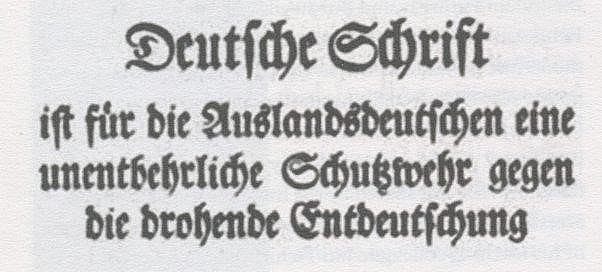 Deutſche Schrift
iſt für die Auslandsdeutſchen eine
unentbehrliche Schutzwehr gegen
die drohende Entdeutſchung